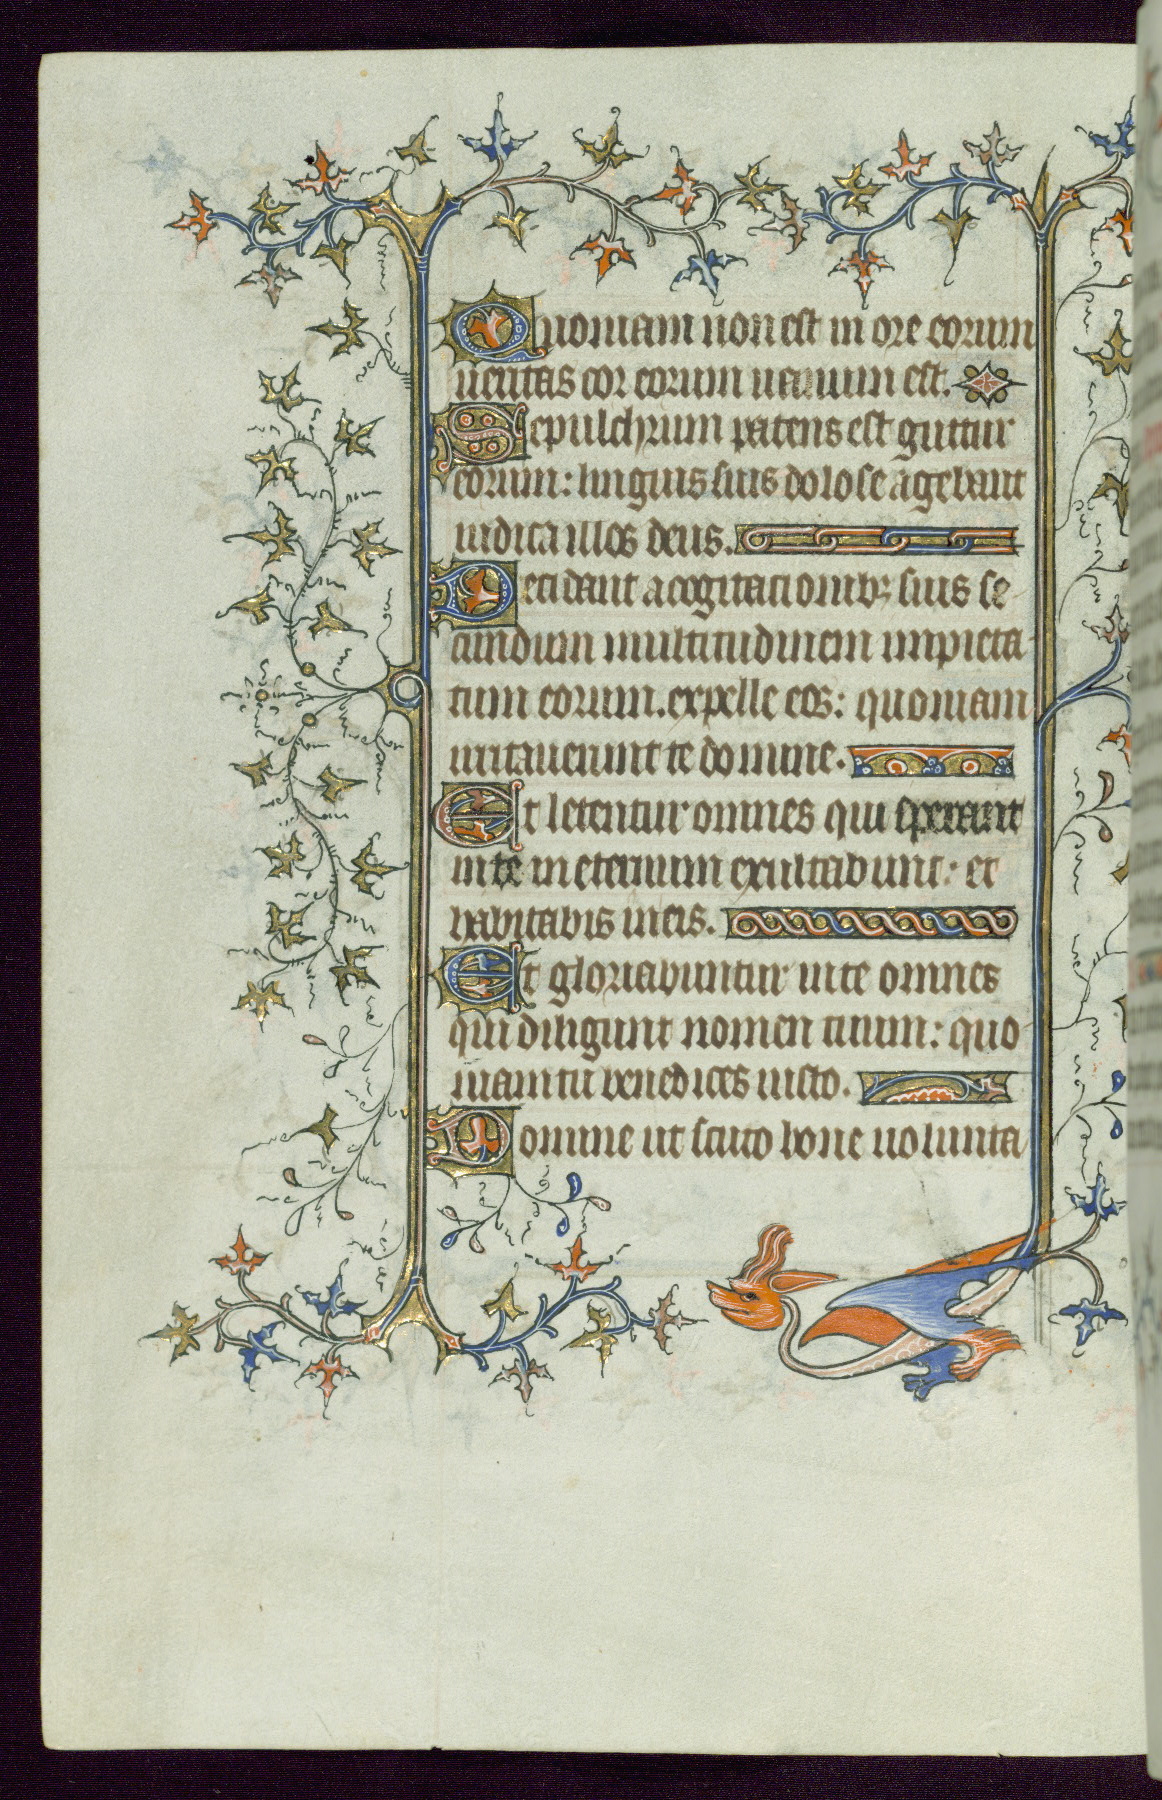 Quoniam non est in ore eorum
ueritas cor eorum uanum est.
Sepulchrum patens est guttur
eorum: linguis suis dolose agebant
iudica illos deus.
Decidant a cogitationib; suis se
cundum multitudinem impieta-
tum eorum. expelle eos: quoniam
irritauerunt te domine.
Et letentur omnes qui sperant
in te in eternum exultabunt: et
habitabis in eis.
Et gloriabuntur in te omnes
qui diligunt nomen tuum: quo-
niam tu benedices iusto.
Domine ut scuto bone uolunta